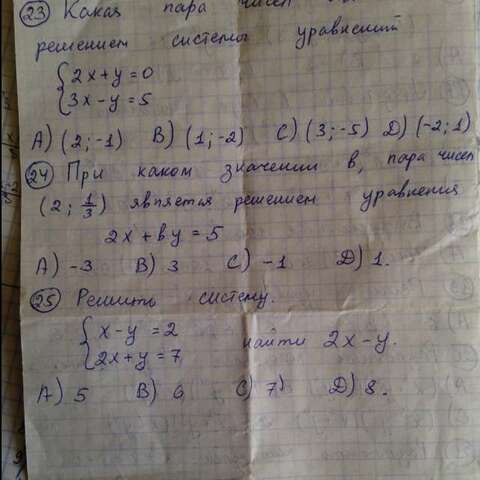 23 Какая пара чисел
решением системы уравнений
2x + y = 0
3x - y = 5
A) (2; -1) B) (1; -2) C) (3; -5) D) (-2; 1)
24 При каком значении в, пара чисел
(2; 1/3) является решением уравнения
2x + вy = 5
A) -3 B) 3 C) -1 D) 1.
25 Решить систему.
x - y = 2
2x + y = 7
найти 2x - y.
A) 5 B) 6 C) 7 D) 8.